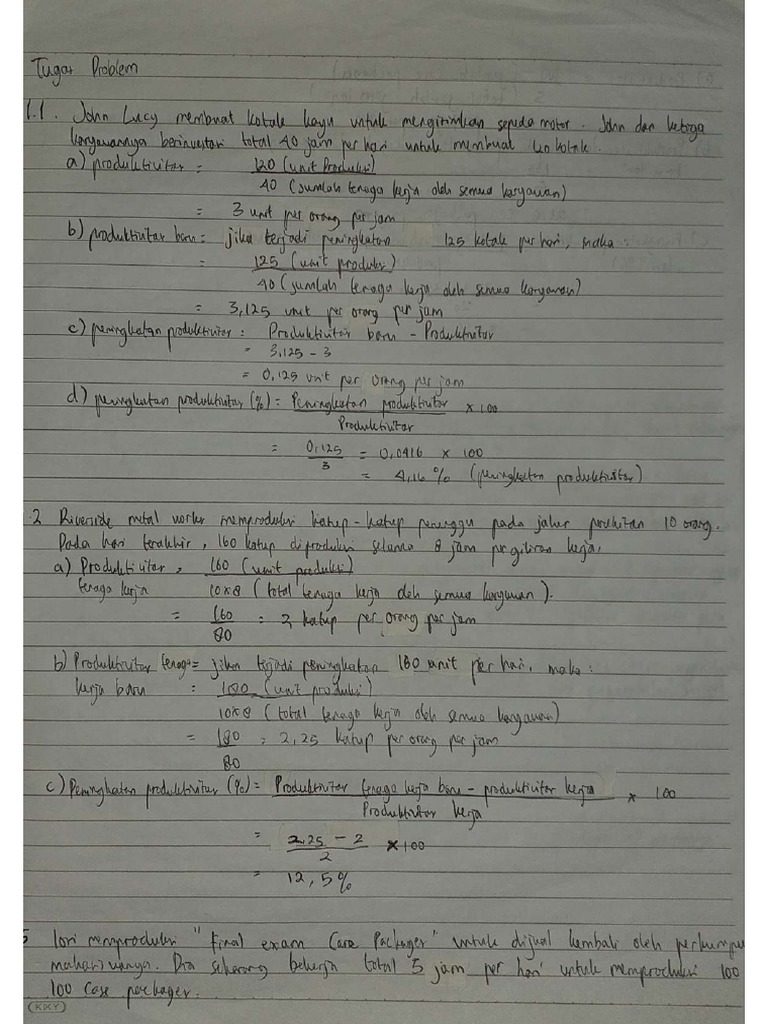 Tugas Problem
1.1. John Lucy membuat kotak kayu untuk mengirimkan sepeda motor. John dan ketiga
karyawannya berinvestasi total 40 jam per hari untuk membuat 120 kotak.
a) produktivitas = 120 (unit Produksi)
40 (jumlah tenaga kerja oleh semua karyawan)
= 3 unit per orang per jam
b) produktivitas baru = jika terjadi peningkatan 125 kotak per hari, maka :
= 125 (unit produksi)
40 (jumlah tenaga kerja oleh semua karyawan)
= 3,125 unit per orang per jam
c) peningkatan produktivitas : Produktivitas baru - Produktivitas
= 3,125 - 3
= 0,125 unit per orang per jam
d) peningkatan produktivitas (%) = Peningkatan produktivitas x 100
Produktivitas
= 0,125 = 0,0416 x 100
3
= 4,16 % (peningkatan produktivitas)
.2 Riverside metal works memproduksi katup-katup penunggu pada jalur perakitan 10 orang.
Pada hari terakhir, 160 katup diproduksi selama 8 jam pergiliran kerja.
a) Produktivitas = 160 (unit produksi)
tenaga kerja 10x8 (total tenaga kerja oleh semua karyawan).
= 160 = 2 katup per orang per jam
80
b) Produktivitas tenaga = jika terjadi peningkatan 180 unit per hari, maka :
kerja baru = 180 (unit produksi)
10x8 (total tenaga kerja oleh semua karyawan)
= 180 = 2,25 katup per orang per jam
80
c) Peningkatan produktivitas (%) = Produktivitas tenaga kerja baru - produktivitas kerja x 100
Produktivitas kerja
= 2,25 - 2 x100
2
= 12,5%
5 Lori memproduksi "Final exam Care Packages" untuk dijual kembali oleh perkumpu
mahasiswanya. Dia sekarang bekerja total 5 jam per hari untuk memproduksi 100
100 case packages.
KKY